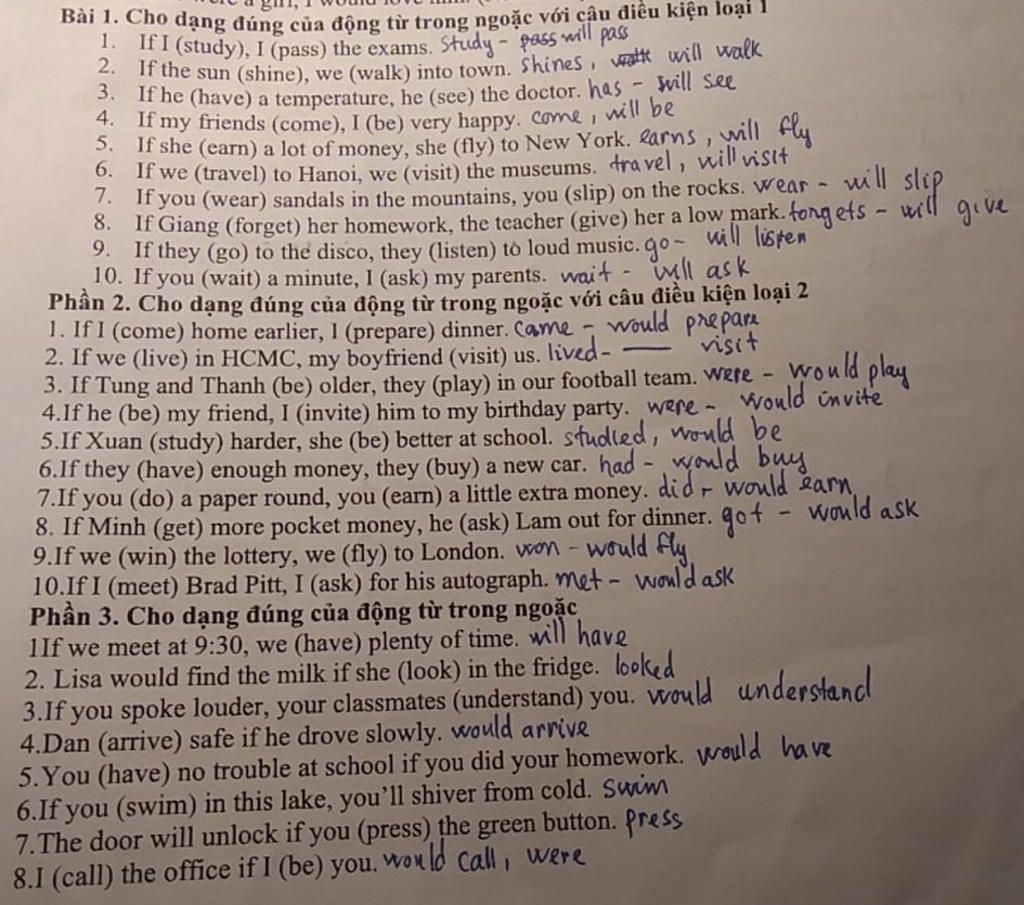 Bài 1. Cho dạng đúng của động từ trong ngoặc với câu điều kiện loại 1
1. If I (study), I (pass) the exams. Study - pass will pass
2. If the sun (shine), we (walk) into town. Shines, walk will walk
3. If he (have) a temperature, he (see) the doctor. has - will see
4. If my friends (come), I (be) very happy. come, will be
5. If she (earn) a lot of money, she (fly) to New York. earns, will fly
6. If we (travel) to Hanoi, we (visit) the museums. travel, will visit
7. If you (wear) sandals in the mountains, you (slip) on the rocks. wear - will slip
8. If Giang (forget) her homework, the teacher (give) her a low mark. forgets - will give
9. If they (go) to the disco, they (listen) to loud music. go - will listen
10. If you (wait) a minute, I (ask) my parents. wait - will ask
Phần 2. Cho dạng đúng của động từ trong ngoặc với câu điều kiện loại 2
1. If I (come) home earlier, I (prepare) dinner. Came - would prepare
2. If we (live) in HCMC, my boyfriend (visit) us. lived - — visit
3. If Tung and Thanh (be) older, they (play) in our football team. were - would play
4.If he (be) my friend, I (invite) him to my birthday party. were - would invite
5.If Xuan (study) harder, she (be) better at school. studied, would be
6.If they (have) enough money, they (buy) a new car. had - would buy
7.If you (do) a paper round, you (earn) a little extra money. did - would earn
8. If Minh (get) more pocket money, he (ask) Lam out for dinner. got - would ask
9.If we (win) the lottery, we (fly) to London. won - would fly
10.If I (meet) Brad Pitt, I (ask) for his autograph. met - would ask
Phần 3. Cho dạng đúng của động từ trong ngoặc
1If we meet at 9:30, we (have) plenty of time. will have
2. Lisa would find the milk if she (look) in the fridge. looked
3.If you spoke louder, your classmates (understand) you. would understand
4.Dan (arrive) safe if he drove slowly. would arrive
5.You (have) no trouble at school if you did your homework. would have
6.If you (swim) in this lake, you'll shiver from cold. Swim
7.The door will unlock if you (press) the green button. press
8.I (call) the office if I (be) you. would call, were